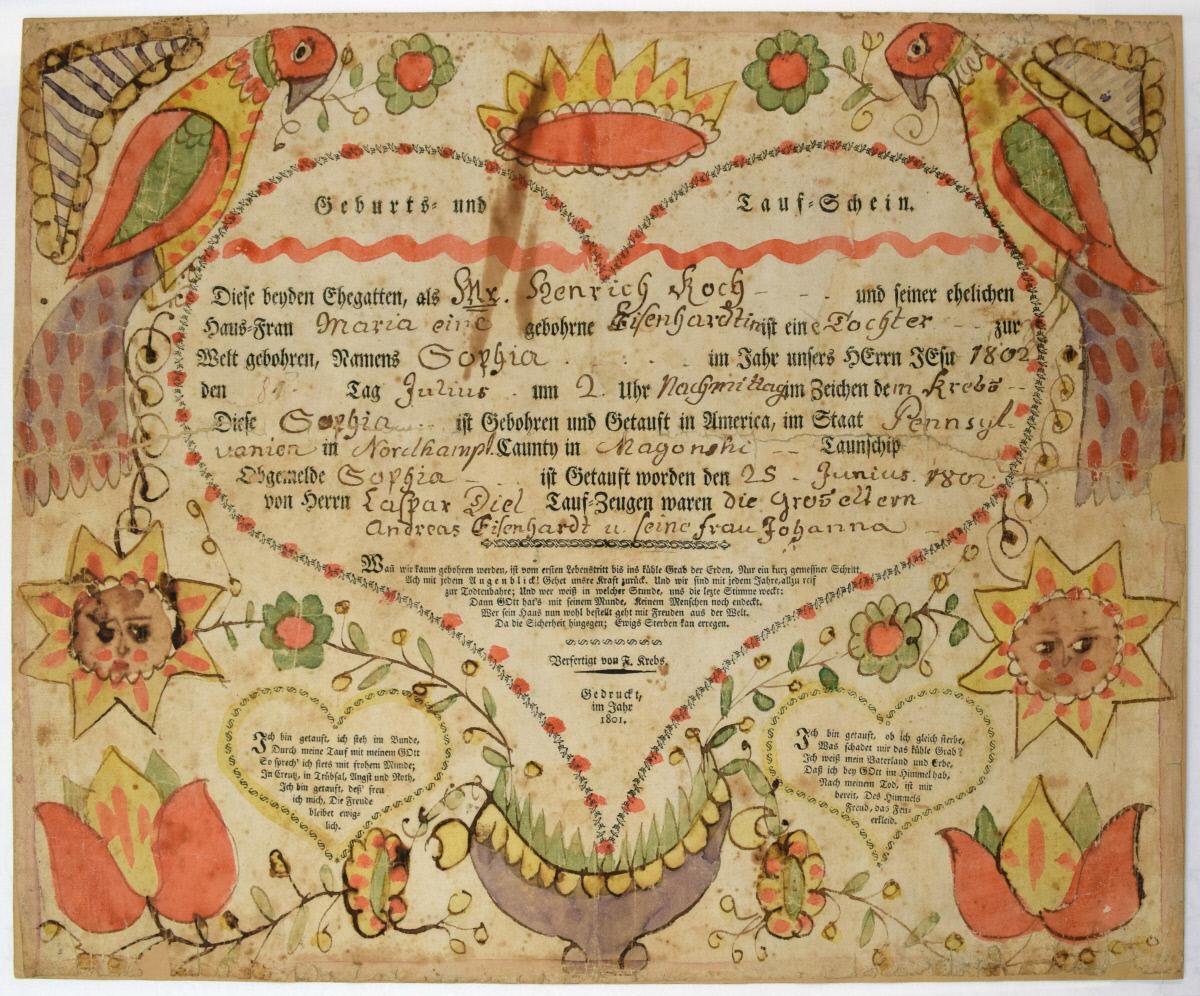 Geburts- und Tauf-Schein.
Diese beyden Ehegatten, als Mr. Henrich Koch und seiner ehelichen
Haus-Frau Maria eine gebohrne Eisenhardtin ist eine Tochter zur
Welt gebohren, Namens Sophia im Jahr unsers HErrn JEsu 1802
den Tag Julius um 2. Uhr Nachmittag im Zeichen dem Krebs
Diese Sophia ist Gebohren und Getauft in America, im Staat Pennsyl-
vanien in Nordhampt. Caunty in Magonshi Taunschip
Obgemelde Sophia ist Getauft worden den 25 Junius 1802
von Herrn Caspar Diel Tauf-Zeugen waren die Großeltern
Andreas Eisenhardt u. seine frau Johanna
Wañ wir kaum gebohren werden, ist vom ersten Lebenstritt bis ins kühle Grab der Erden, Nur ein kurz gemessner Schritt,
Ach mit jedem Augenblick! Gehet unsre Kraft zurück. Und wir sind mit jedem Jahre, allzu reif
zur Todtenbahre; Und wer weiß in welcher Stunde, uns die lezte Stimme weckt:
Dann GOtt hat's mit seinem Munde, Keinem Menschen noch endeckt.
Wer sein Haus nun wohl bestellt geht mit Freuden aus der Welt.
Da die Sicherheit hingegen; Ewigs Sterben kan erregen.
Verfertigt von F. Krebs.
Gedruckt,
im Jahr
1801.
Ich bin getauft, ich steh im Bunde,
Durch meine Tauf mit meinem GOtt
So sprech' ich stets mit frohem Munde;
In Creutz, in Trübsal, Angst und Noth,
Ich bin getauft, deß' freu
ich mich, Die Freude
bleibet ewig-
lich.
Ich bin getauft, ob ich gleich sterbe,
Was schadet mir das kühle Grab?
Ich weiß mein Vaterland und Erbe,
Daß ich bey GOtt im Himmel hab,
Nach meinem Tod, ist mir
bereit, Des Himmels
Freud, das Fey-
erkleid.